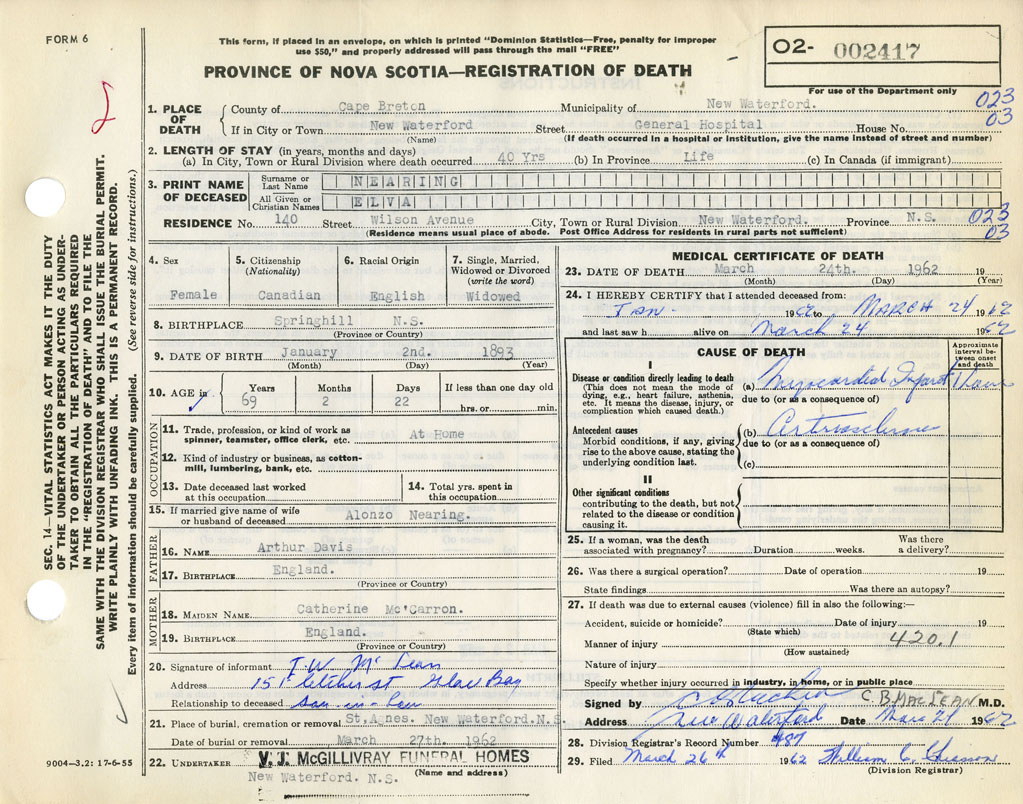 FORM 6
This form, if placed in an envelope, on which is printed "Dominion Statistics—Free, penalty for improper
use $50," and properly addressed will pass through the mail "FREE"
02- 002417
For use of the Department only
PROVINCE OF NOVA SCOTIA—REGISTRATION OF DEATH
SEC. 14—VITAL STATISTICS ACT MAKES IT THE DUTY
OF THE UNDERTAKER OR PERSON ACTING AS UNDER-
TAKER TO OBTAIN ALL THE PARTICULARS REQUIRED
IN THE "REGISTRATION OF DEATH" AND TO FILE THE
SAME WITH THE DIVISION REGISTRAR WHO SHALL ISSUE THE BURIAL PERMIT.
WRITE PLAINLY WITH UNFADING INK. THIS IS A PERMANENT RECORD.
Every item of information should be carefully supplied. (See reverse side for instructions.)
1. PLACE OF DEATH
County of Cape Breton Municipality of New Waterford. 023
If in City or Town New Waterford Street General Hospital House No. 03
(Name) (If death occurred in a hospital or institution, give the name instead of street and number)
2. LENGTH OF STAY (in years, months and days)
(a) In City, Town or Rural Division where death occurred 40 Yrs (b) In Province Life (c) In Canada (if immigrant)
3. PRINT NAME OF DECEASED
Surname or Last Name NEARING
All Given or Christian Names ELVA
RESIDENCE No. 140 Street Wilson Avenue City, Town or Rural Division New Waterford. Province N.S. 023
03
(Residence means usual place of abode. Post Office Address for residents in rural parts not sufficient)
4. Sex 5. Citizenship (Nationality) 6. Racial Origin 7. Single, Married, Widowed or Divorced (write the word)
Female Canadian English Widowed
8. BIRTHPLACE Springhill N.S.
(Province or Country)
9. DATE OF BIRTH January 2nd. 1893
(Month) (Day) (Year)
10. AGE in Years Months Days If less than one day old
69 2 22 hrs. or min.
OCCUPATION
11. Trade, profession, or kind of work as
spinner, teamster, office clerk, etc. At Home
12. Kind of industry or business, as cotton-
mill, lumbering, bank, etc.
13. Date deceased last worked
at this occupation
14. Total yrs. spent in
this occupation
15. If married give name of wife
or husband of deceased Alonzo Nearing.
FATHER
16. NAME Arthur Davis
17. BIRTHPLACE England.
(Province or Country)
MOTHER
18. MAIDEN NAME Catherine Mc'Carron.
19. BIRTHPLACE England.
(Province or Country)
20. Signature of informant T.W. McLean
Address 15 Fletcher st Glace Bay
Relationship to deceased Son-in-law
21. Place of burial, cremation or removal St. Agnes. New Waterford.N.S.
Date of burial or removal March 27th. 1962
22. UNDERTAKER V. J. McGILLIVRAY FUNERAL HOMES
New Waterford. N.S. (Name and address)
9004—3.2: 17-6-55
MEDICAL CERTIFICATE OF DEATH
23. DATE OF DEATH March 24th. 1962 19
(Month) (Day) (Year)
24. I HEREBY CERTIFY that I attended deceased from:
Jan- 1962 to MARCH 24 1962
and last saw h alive on March 24 1962
CAUSE OF DEATH
Approximate interval between onset and death
I
Disease or condition directly leading to death
(This does not mean the mode of
dying, e.g., heart failure, asthenia,
etc. It means the disease, injury, or
complication which caused death.)
(a) Myocardial Infarct
due to (or as a consequence of)
Antecedent causes
Morbid conditions, if any, giving
rise to the above cause, stating the
underlying condition last.
(b) Arteriosclerosis
due to (or as a consequence of)
(c)
II
Other significant conditions
contributing to the death, but not
related to the disease or condition
causing it.
25. If a woman, was the death Was there
associated with pregnancy? Duration weeks. a delivery?
26. Was there a surgical operation? Date of operation 19
State findings Was there an autopsy?
27. If death was due to external causes (violence) fill in also the following:—
Accident, suicide or homicide? Date of injury 19
(State which)
Manner of injury 420.1
(How sustained)
Nature of injury
Specify whether injury occurred in industry, in home, or in public place
Signed by C. B. MACLEAN M.D.
Address New Waterford Date Mar 1962
28. Division Registrar's Record Number 487
29. Filed March 26th 1962 William C.
(Division Registrar)